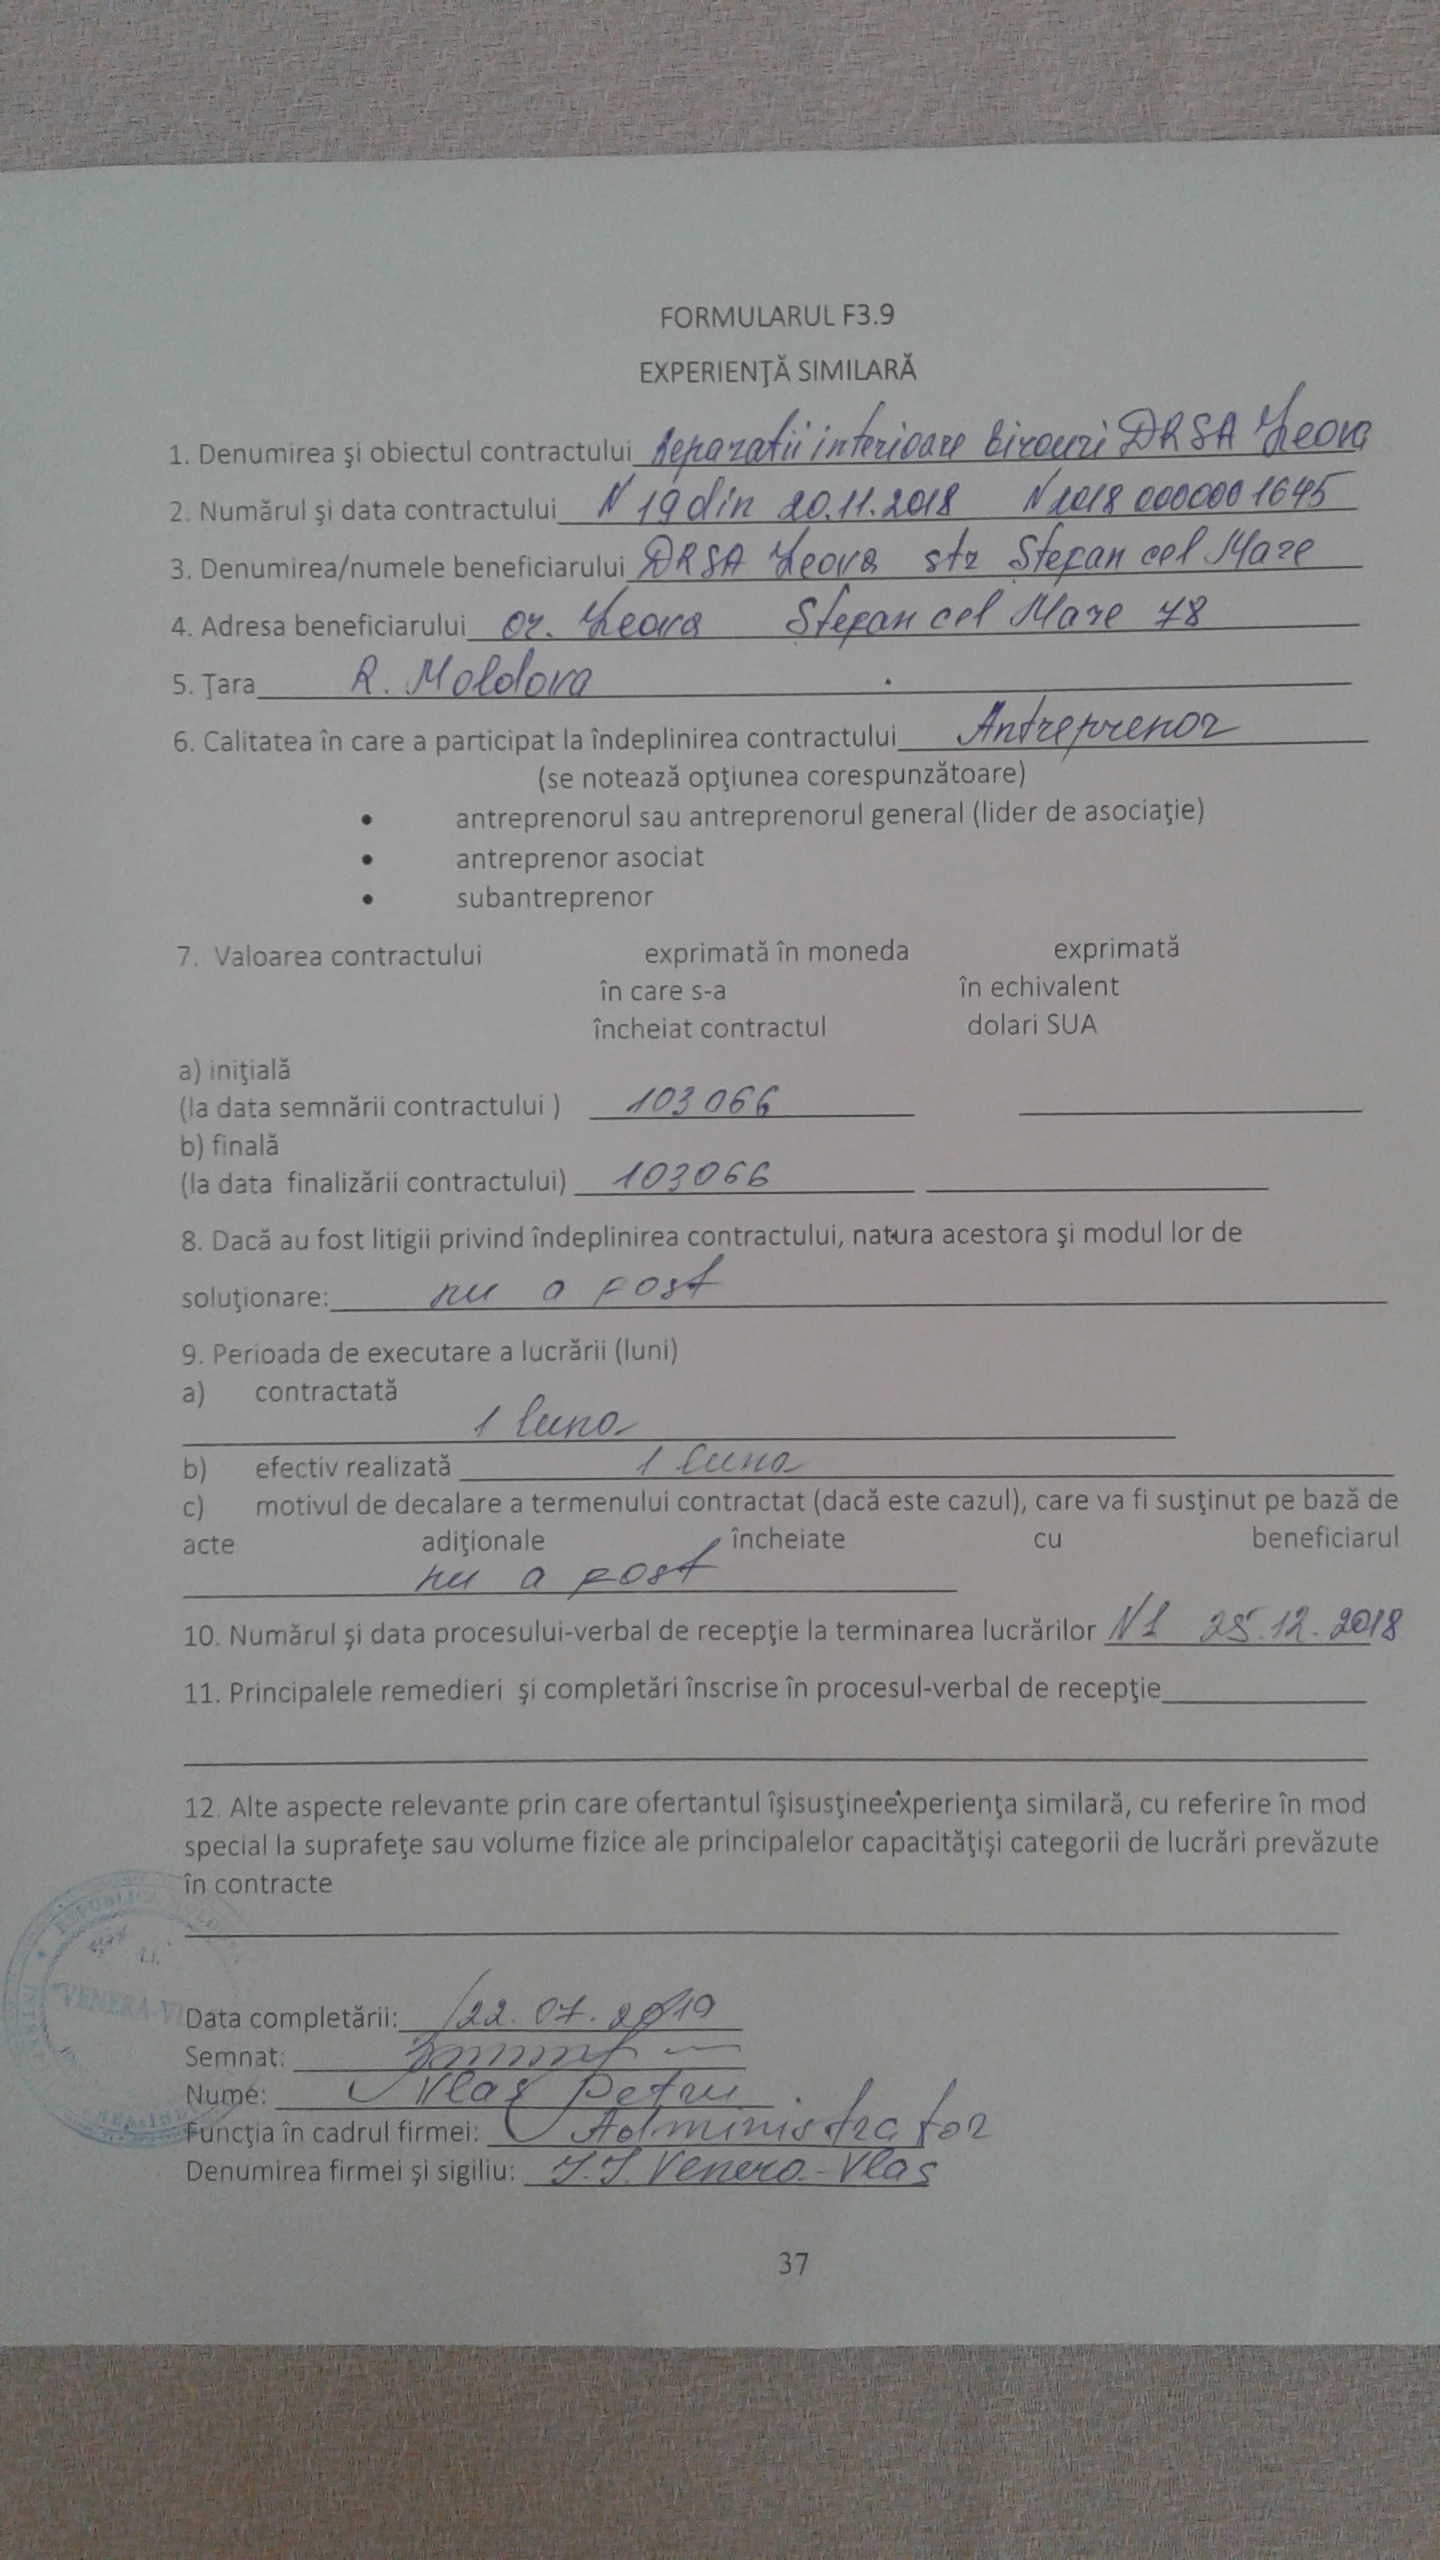 FORMULARUL F3.9
EXPERIENŢĂ SIMILARĂ
1. Denumirea şi obiectul contractului Reparatii interioare birouri DRSA Leova
2. Numărul şi data contractului N 19 din 20.11.2018 N 2018 0000001645
3. Denumirea/numele beneficiarului DRSA Leova str Ștefan cel Mare
4. Adresa beneficiarului or. Leova Ștefan cel Mare 78
5. Ţara R. Moldova
6. Calitatea în care a participat la îndeplinirea contractului Antreprenor
(se notează opţiunea corespunzătoare)
• antreprenorul sau antreprenorul general (lider de asociaţie)
• antreprenor asociat
• subantreprenor
7. Valoarea contractului exprimată în moneda exprimată
în care s-a în echivalent
încheiat contractul dolari SUA
a) iniţială
(la data semnării contractului ) 103 066
b) finală
(la data finalizării contractului) 103066
8. Dacă au fost litigii privind îndeplinirea contractului, natura acestora şi modul lor de
soluţionare: nu a fost
9. Perioada de executare a lucrării (luni)
a) contractată
1 luna
b) efectiv realizată 1 luna
c) motivul de decalare a termenului contractat (dacă este cazul), care va fi susţinut pe bază de
acte adiţionale încheiate cu beneficiarul
nu a fost
10. Numărul şi data procesului-verbal de recepţie la terminarea lucrărilor N1 25.12.2018
11. Principalele remedieri şi completări înscrise în procesul-verbal de recepţie
12. Alte aspecte relevante prin care ofertantul îşisusţineexperienţa similară, cu referire în mod
special la suprafeţe sau volume fizice ale principalelor capacităţişi categorii de lucrări prevăzute
în contracte
REPUBLICA
Î.I.
"VENERA-VL
Data completării: 22.07.2019
Semnat:
Nume: Vlas Petru
Funcţia în cadrul firmei: Administrator
Denumirea firmei şi sigiliu: I.I. Venera-Vlas
37